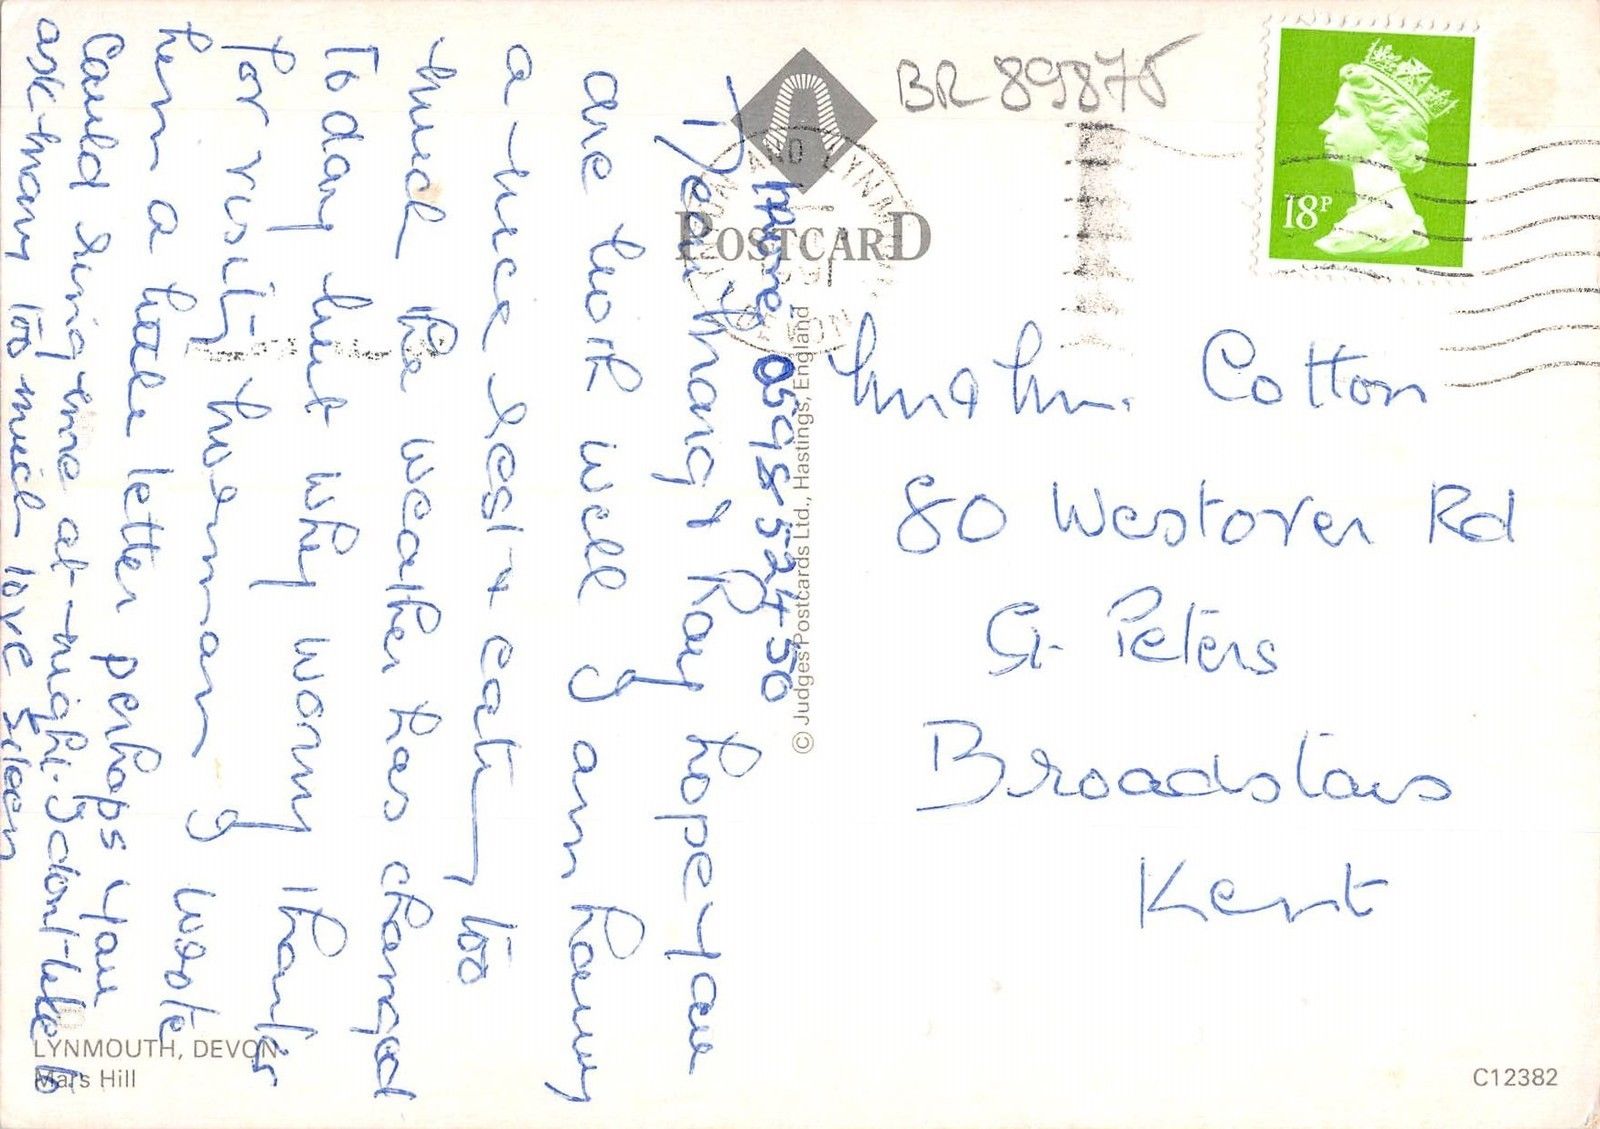 BR 89875
18P
POSTCARD
LYNTON AND LYNMOUTH
DEVON
© Judges Postcards Ltd., Hastings, England
Home 0598 52450
Dear Mary & Ray hope you
are both well I am having
a nice rest & eating too
much the weather has changed
Today but why worry thanks
for visiting Norman I wrote
him a little letter perhaps you
Could ring me at night. I dont like to
ask Mary too much love Eileen
Mr & Mrs. Cotton
80 Westover Rd
St. Peters
Broadstairs
Kent
LYNMOUTH, DEVON
Mars Hill
C12382